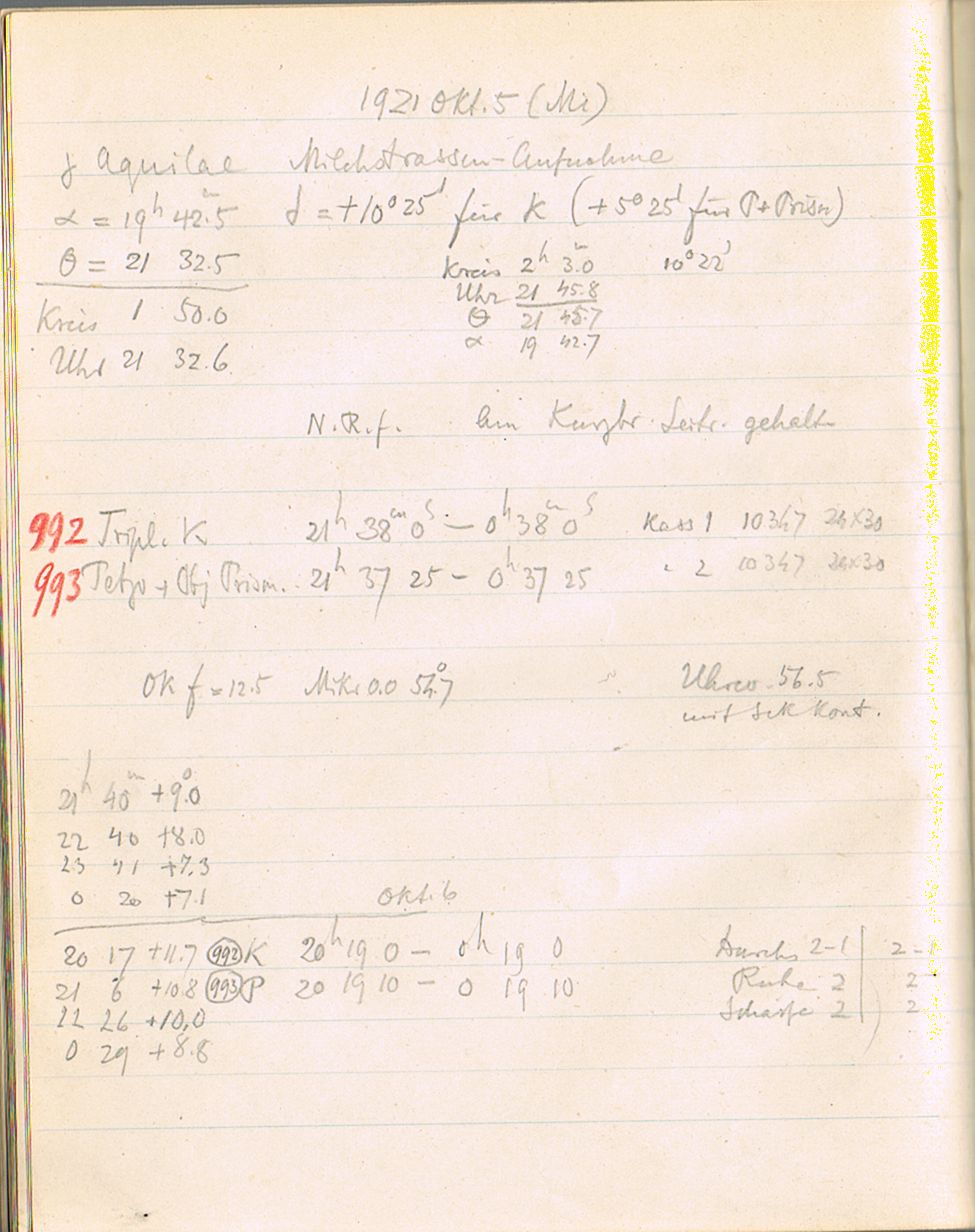 1921 Okt. 5 (Mi)
γ Aquilae Milchstrassen-Aufnahme
α = 19h 42m.5 δ = +10° 25' für K (+5° 25' für P + Prism)
θ = 21 32.5 Kreis 2h 3m.0 10° 22'
Uhr 21 45.8
Kreis 1 50.0 θ 21 45.7
α 19 42.7
Uhr 21 32.6
N.R.f. Leitr. gehalt
992 Tripl. K 21h 38m 0s – 0h 38m 0s Kass 1 10347 24×30
993 Tetr + Obj Prism. 21h 37 25 – 0h 37 25 " 2 10347 24×30
Ok f = 12.5 Mikr 0.0 54°.7 56.5
mit Sek Kont.
21h 40m +9°.0
22 40 +8.0
23 41 +7.3
0 20 +7.1 Okt. 6
20 17 +11.7 992 K 20h 19 0 – 0h 19 0 Durchs 2-1 2-1
21 6 +10.8 993 P 20 19 10 – 0 19 10 Ruhe 2 2
22 26 +10.0 Schärfe 2 2
0 29 +8.8